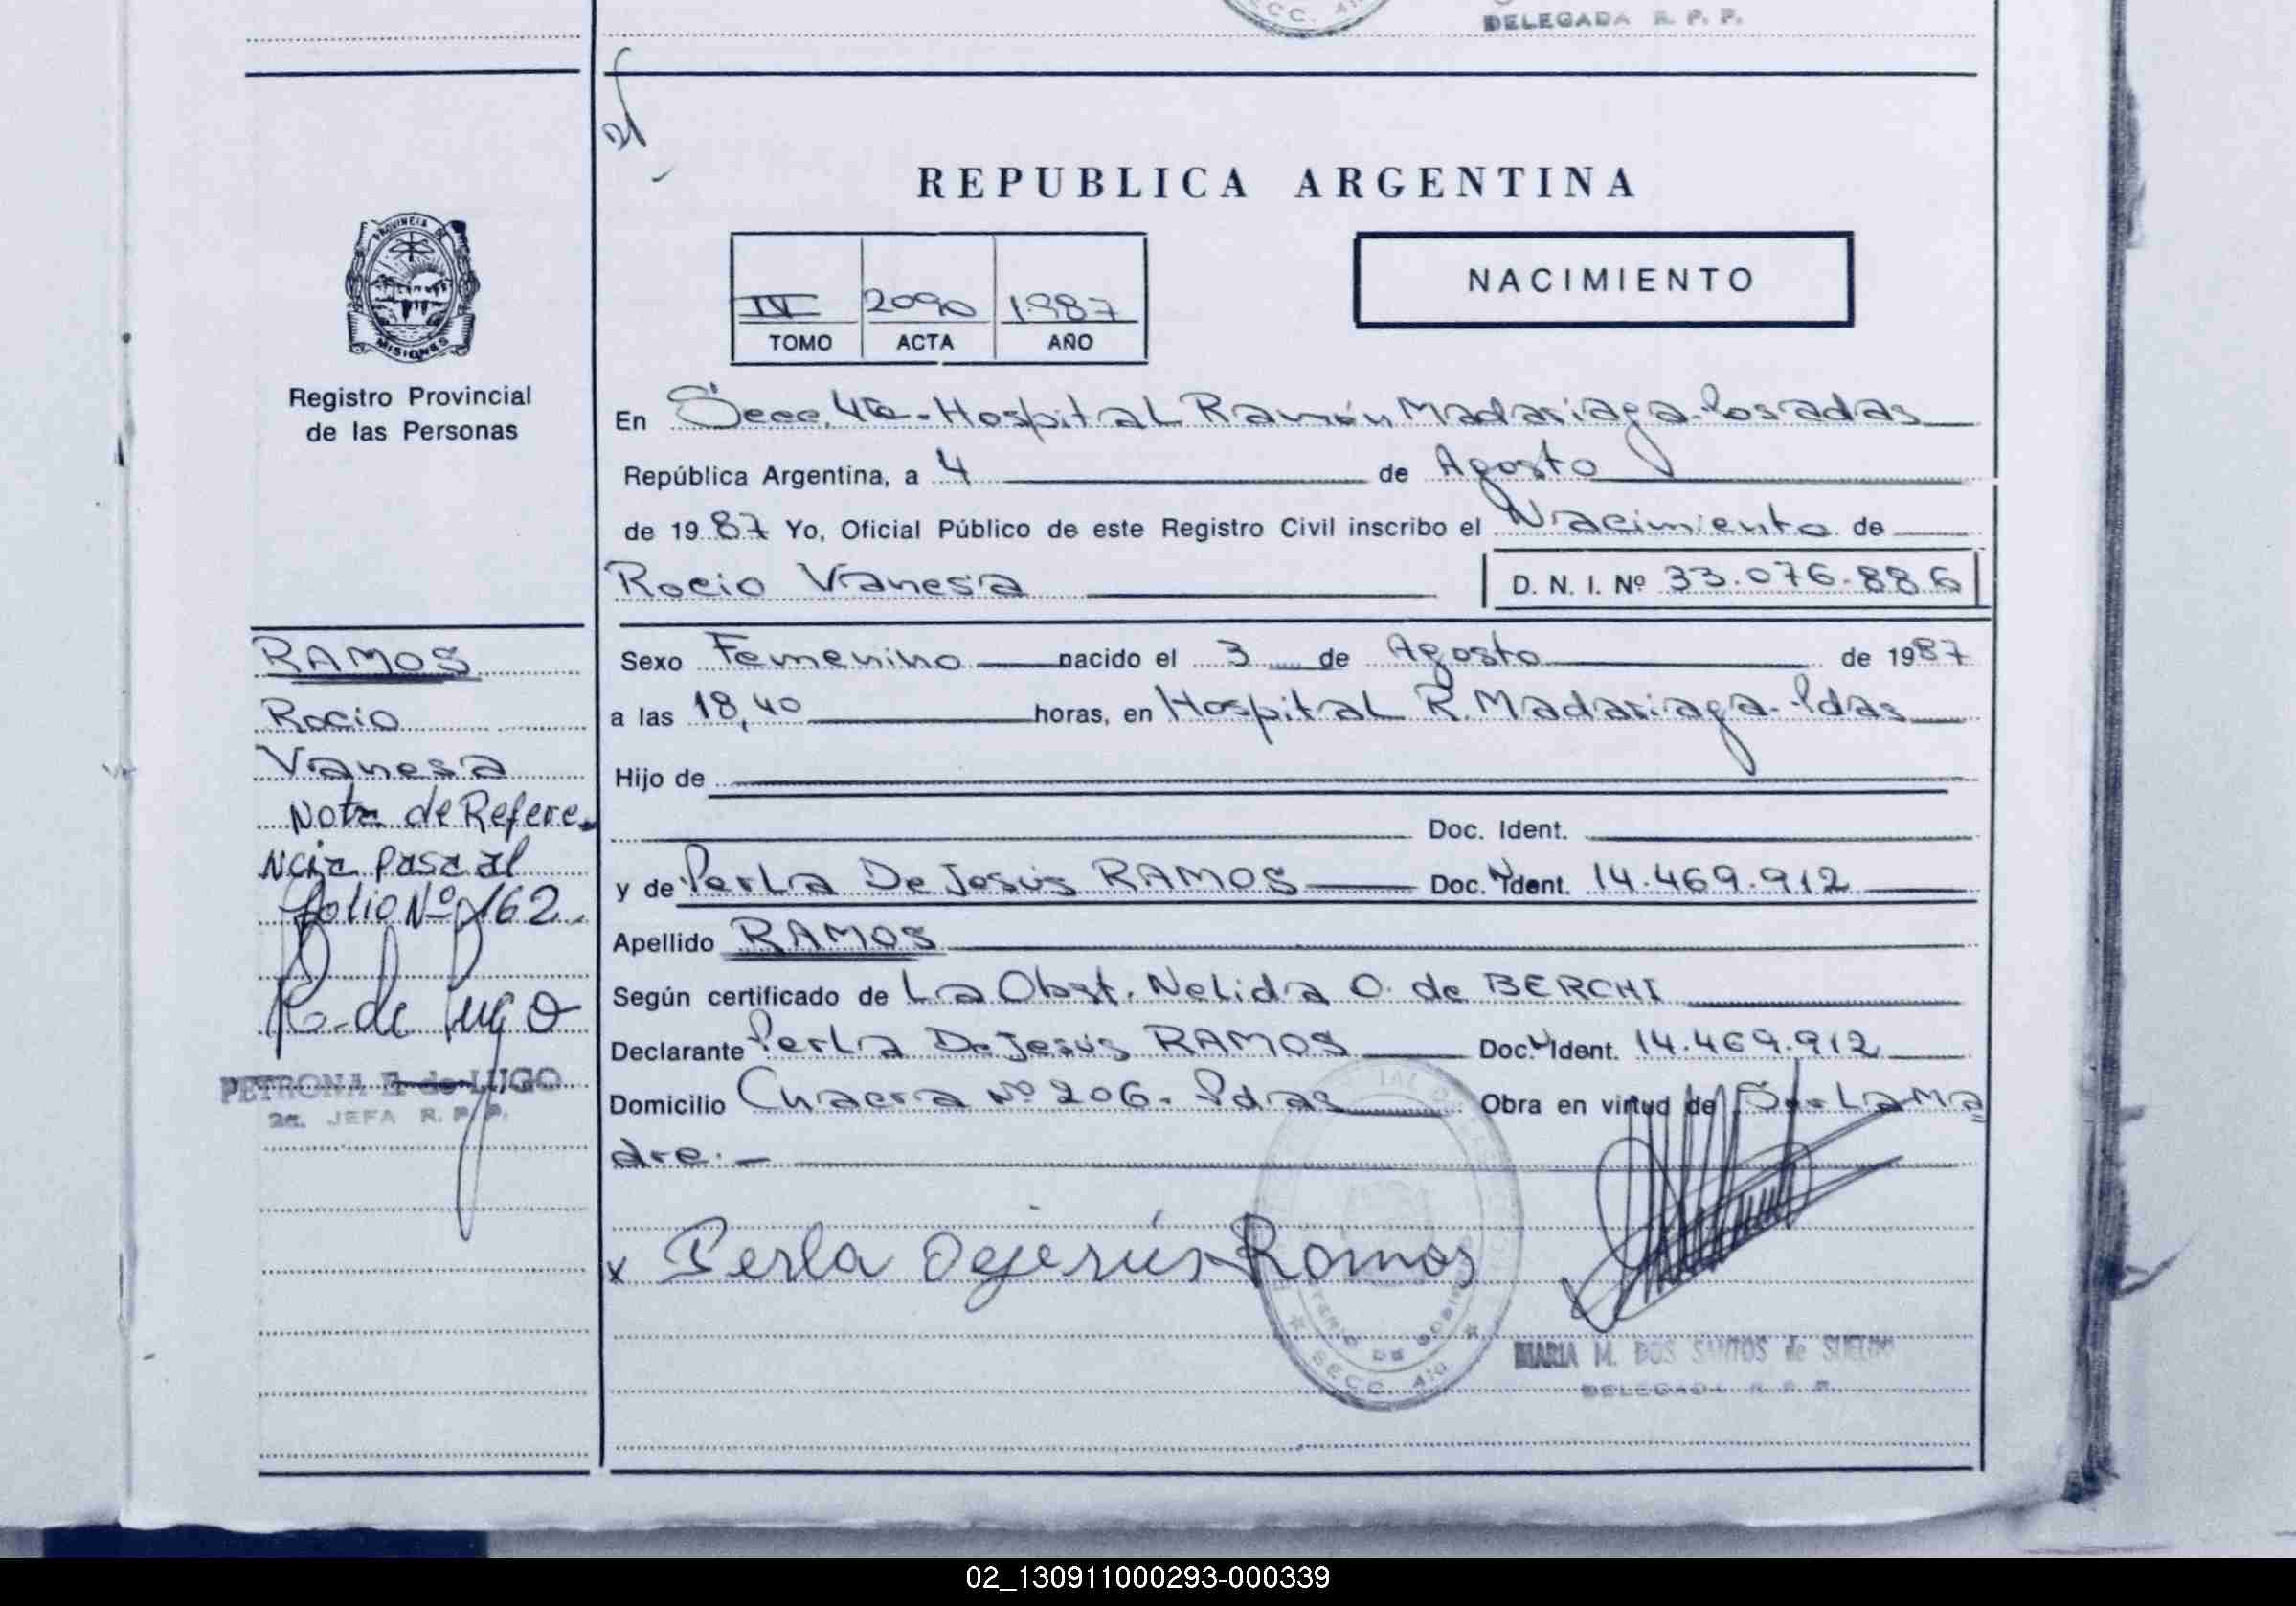 DELEGADA R. P. P.
REPUBLICA ARGENTINA
PROVINCIA DE
MISIONES
IV 2090 1987
TOMO ACTA AÑO
NACIMIENTO
Registro Provincial
de las Personas
En Secc. 4ta.-Hospital Ramón Madariaga-Posadas
República Argentina, a 4 de Agosto
de 1987 Yo, Oficial Público de este Registro Civil inscribo el Nacimiento de
Rocio Vanesa D. N. I. Nº 33.076.886
RAMOS
Rocio
Vanesa
Nota de Refere-
ncia pasa al
folio Nº 162.
R. de Lugo
PETRONA E de LUGO
2a. JEFA R. P. P.
Sexo Femenino nacido el 3 de Agosto de 1987
a las 18,40 horas, en Hospital R. Madariaga-Pdas
Hijo de
Doc. Ident.
y de Perla De Jesús RAMOS Doc. Ident. 14.469.912
Apellido RAMOS
Según certificado de La Obst. Nelida O. de BERCHI
Declarante Perla De Jesús RAMOS Doc. Ident. 14.469.912
Domicilio Chacra Nº 206. Pdas Obra en virtud de Ser La Ma
dre.-
x Perla Dejesús Ramos
SECC. 4ta.
MARIA M. DOS SANTOS de SUELDO
DELEGADA R. P. P.
02_130911000293-000339